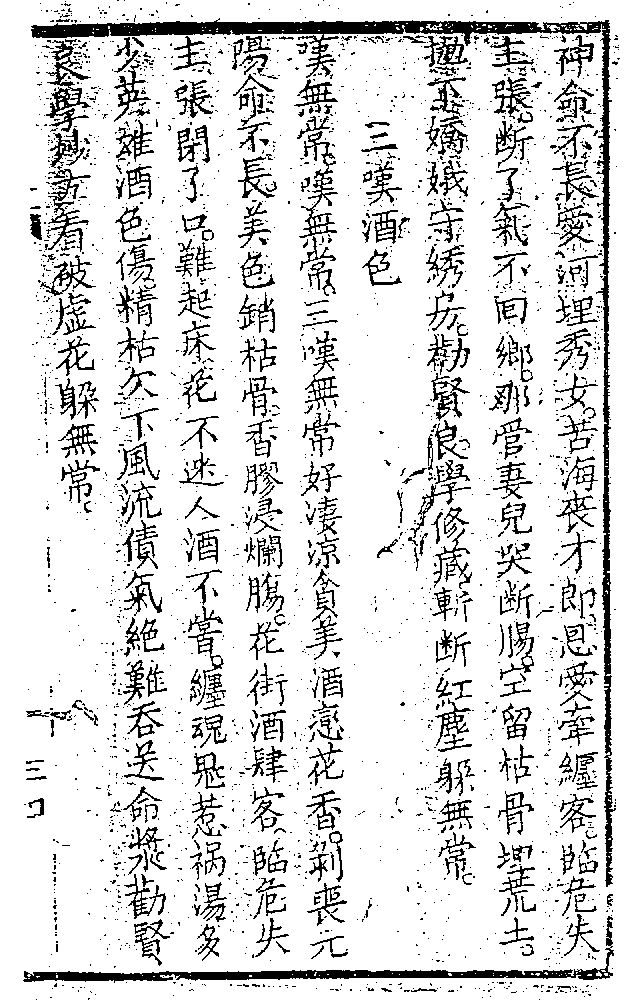 神命不長。愛河埋秀女。苦海喪才郎。恩愛牽纏客。臨危失
主張。断了氣不回鄉。那管妻兒哭断腸。空留枯骨埋荒土。
抛下嬌娥守綉房。勸賢良。學修藏。斬断紅塵躲無常。
三嘆酒色
嘆無常。嘆無常。三嘆無常好淒涼。貪美酒戀花香。剝喪元
陽命不長。美色銷枯骨。香膠浸爛腸。花街酒肆客。臨危失
主張。閉了口。難起床。花不迷人酒不嘗。纏魂鬼惹祸湯。多
少英雄酒色傷。精枯欠下風流債。氣絶難吞送命漿。勸賢
良學妙方。看破虛花躲無常。